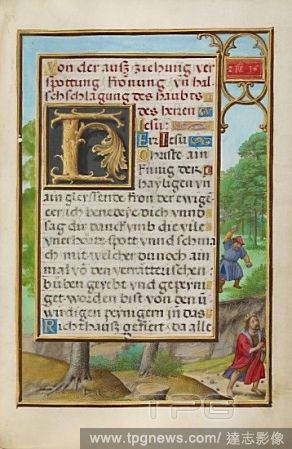 Von der ausz ziehung ver
spottung krönung vn̄ hal
schschlagung des haubts
des herren
Jesu:
HErr Jesu
Christe ain
künig der
hayligen vn̄
ain gleyssende kron der ewigē
eer ich benedeye dich vnnd
sag dir danck vmb die vile
vnerhörte spott vnnd schma
ch mit welcher du noch ain
mal võ den verrätterischen
büben geert vnd gepeyni
get worden bist von den ū
wirdigen peynigern in das
Richthausz gefiert da alle
TPG
www.tpgnews.com / 達志影像